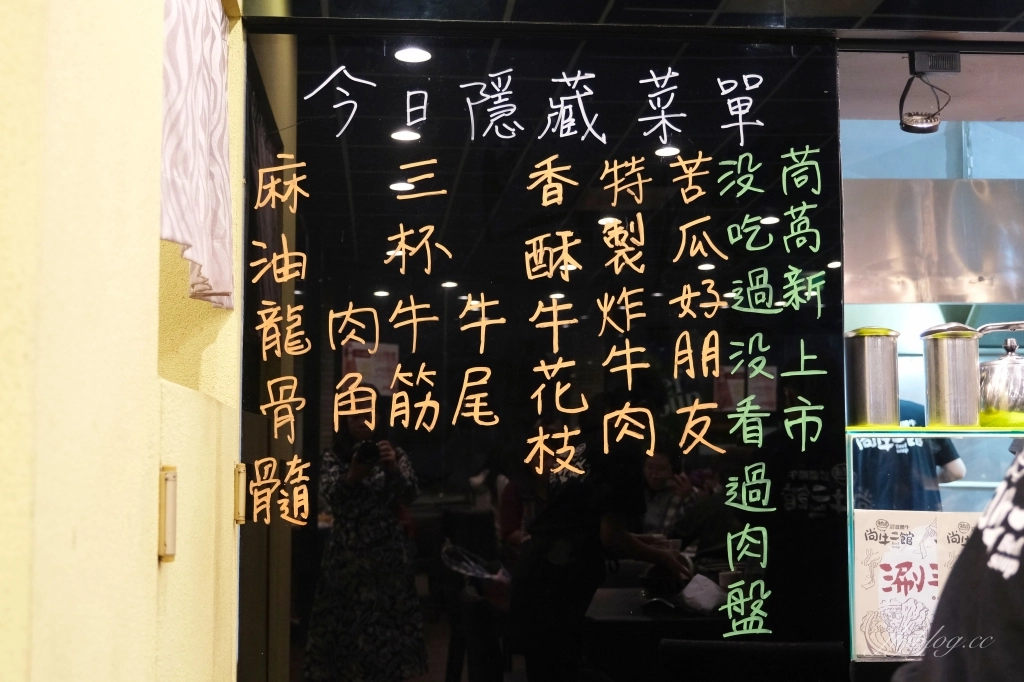 今日隱藏菜單
茼萵新上市
没吃過没看過肉盤
苦瓜好朋友
特製炸牛肉
香酥牛花枝
牛尾
三杯牛筋
肉角
麻油龍骨髓
尚牛二館
涮
log.cc